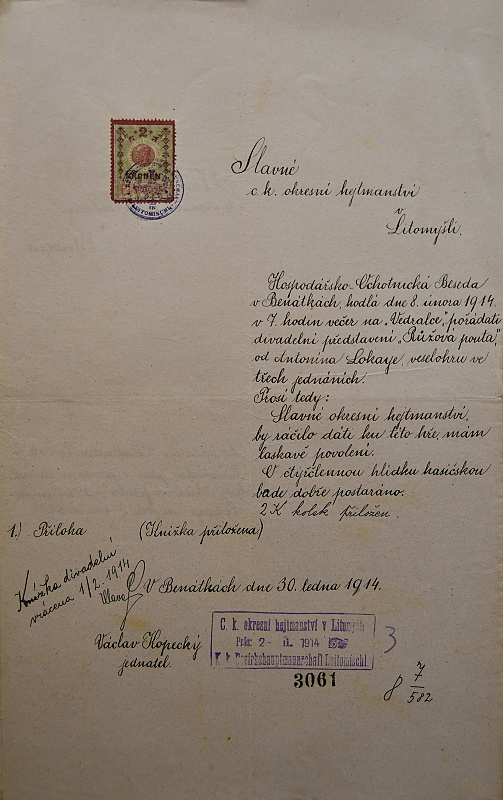 2
KRONEN
LEITOMISCHL
Slavné
c. k. okresní hejtmanství
v
Litomyšli.
Hospodářsko-Ochotnická Beseda
v Benátkách, hodlá dne 8. února 1914
v 7 hodin večer na „Vedralce", pořádati
divadelní představení „Růžová pouta",
od Antonína Lokaye, veselohru ve
třech jednáních.
Prosí tedy:
Slavné okresní hejtmanství,
by ráčilo dáti ku této hře, nám
laskavé povolení.
O čtyřčlennou hlídku hasičskou
bude dobře postaráno.
2 K kolek přiložen.
1.) Příloha (Knížka přiložena)
Knížka divadelní
vrácena 1/2. 1914
V Benátkách dne 30. ledna 1914.
Václav Kopecký
jednatel.
C. k. okresní hejtmanství v Litomyšli
Präs. 2 - II. 1914
K. k. Bezirkshauptmannschaft Leitomischl.
3
3061
8 7/582